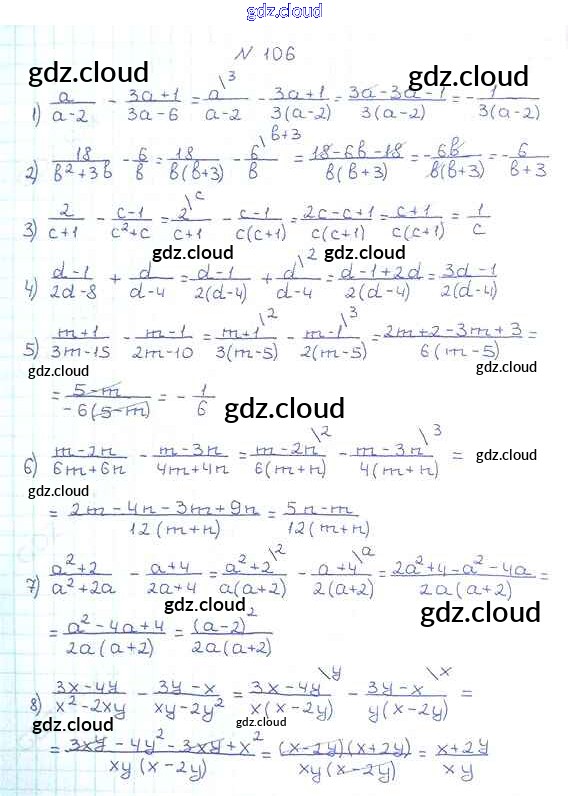 gdz.cloud
N 106
gdz.cloud gdz.cloud
1) a/(a-2) - (3a+1)/(3a-6) = a\3/(a-2) - (3a+1)/(3(a-2)) = (3a-3a-1)/(3(a-2)) = -1/(3(a-2))
gdz.cloud gdz.cloud
2) 18/(b²+3b) - 6/b = 18/(b(b+3)) - 6\b+3/b = (18-6b-18)/(b(b+3)) = -6b/(b(b+3)) = -6/(b+3)
gdz.cloud
3) 2/(c+1) - (c-1)/(c²+c) = 2\c/(c+1) - (c-1)/(c(c+1)) = (2c-c+1)/(c(c+1)) = (c+1)/(c(c+1)) = 1/c
gdz.cloud gdz.cloud
4) (d-1)/(2d-8) + d/(d-4) = (d-1)/(2(d-4)) + d\2/(d-4) = (d-1+2d)/(2(d-4)) = (3d-1)/(2(d-4))
gdz.cloud gdz.cloud
5) (m+1)/(3m-15) - (m-1)/(2m-10) = (m+1)\2/(3(m-5)) - (m-1)\3/(2(m-5)) = (2m+2-3m+3)/(6(m-5)) =
gdz.cloud gdz.cloud
= (5-m)/(-6(5-m)) = -1/6
gdz.cloud
6) (m-2n)/(6m+6n) - (m-3n)/(4m+4n) = (m-2n)\2/(6(m+n)) - (m-3n)\3/(4(m+n)) =
gdz.cloud gdz.cloud
= (2m-4n-3m+9n)/(12(m+n)) = (5n-m)/(12(m+n))
gdz.cloud
7) (a²+2)/(a²+2a) - (a+4)/(2a+4) = (a²+2)\2/(a(a+2)) - (a+4)\a/(2(a+2)) = (2a²+4-a²-4a)/(2a(a+2)) =
gdz.cloud gdz.cloud
= (a²-4a+4)/(2a(a+2)) = (a-2)²/(2a(a+2))
gdz.cloud
8) (3x-4y)/(x²-2xy) - (3y-x)/(xy-2y²) = (3x-4y)\y/(x(x-2y)) - (3y-x)\x/(y(x-2y)) =
gdz.cloud gdz.cloud
= (3xy-4y²-3xy+x²)/(xy(x-2y)) = ((x-2y)(x+2y))/(xy(x-2y)) = (x+2y)/(xy)
gdz.cloud